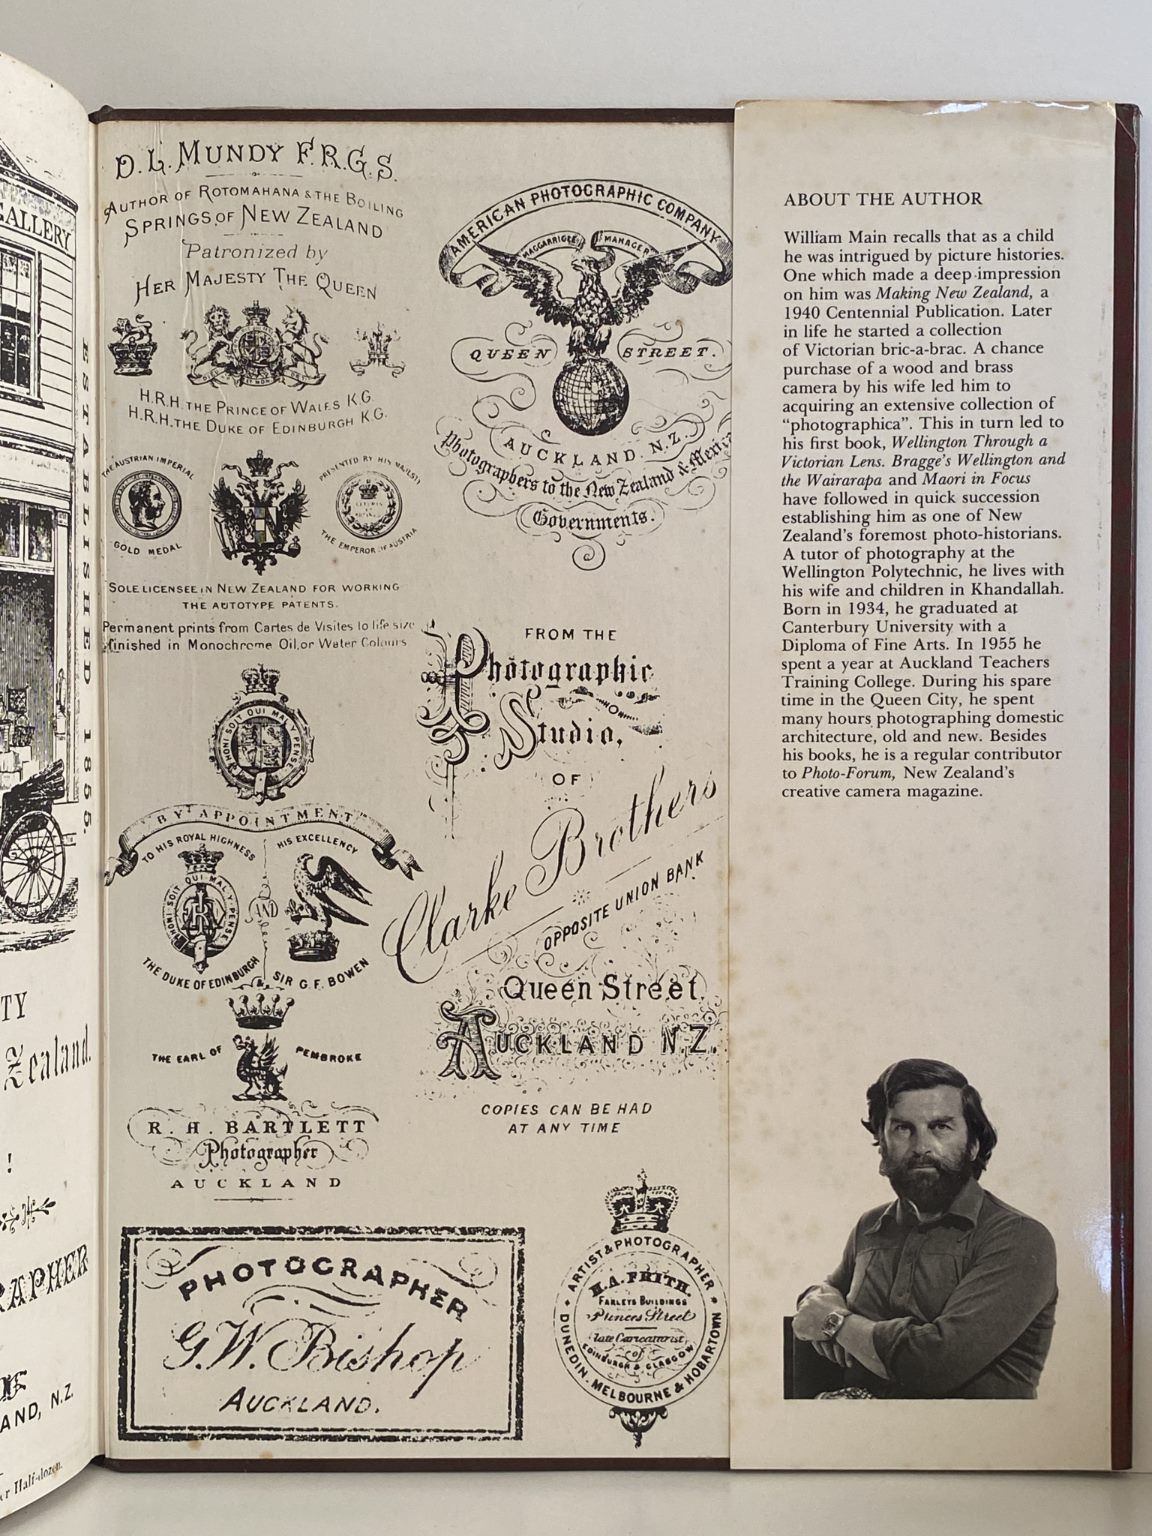 GALLERY
ESTABLISHED 1855.
TY
Zealand.
!
RAPHER
AND, N.Z.
er Half-dozen.
D. L. MUNDY F.R.G.S.
AUTHOR OF ROTOMAHANA & THE BOILING
SPRINGS, OF NEW ZEALAND
Patronized by
HER MAJESTY THE QUEEN
H.R.H. THE PRINCE OF WALES K.G.
H.R.H. THE DUKE OF EDINBURGH K.G.
THE AUSTRIAN IMPERIAL
GOLD MEDAL
PRESENTED BY HIS MAJESTY
THE EMPEROR OF AUSTRIA
SOLE LICENSEE IN NEW ZEALAND FOR WORKING
THE AUTOTYPE PATENTS.
Permanent prints from Cartes de Visites to life size
finished in Monochrome Oil, or Water Colours
HONI SOIT QUI MAL Y PENSE
BY APPOINTMENT
TO HIS ROYAL HIGHNESS
HIS EXCELLENCY
HONI SOIT QUI MAL Y PENSE
AND
THE DUKE OF EDINBURGH
SIR G. F. BOWEN
THE EARL OF PEMBROKE
R. H. BARTLETT
Photographer
AUCKLAND
AMERICAN PHOTOGRAPHIC COMPANY
MACGARRIGLE MANAGER
QUEEN STREET.
AUCKLAND. N.Z.
Photographers to the New Zealand &
Governments.
FROM THE
Photographic
Studio,
OF
Clarke Brothers
OPPOSITE UNION BANK
Queen Street
AUCKLAND N.Z.
COPIES CAN BE HAD
AT ANY TIME
PHOTOGRAPHER
G. W. Bishop
AUCKLAND.
ARTIST & PHOTOGRAPHER
H. A. FRITH.
FARLEYS BUILDINGS
Princes Street
late Caricaturist
of
EDINBURGH & GLASGOW
DUNEDIN, MELBOURNE & HOBARTOWN
ABOUT THE AUTHOR
William Main recalls that as a child
he was intrigued by picture histories.
One which made a deep impression
on him was Making New Zealand, a
1940 Centennial Publication. Later
in life he started a collection
of Victorian bric-a-brac. A chance
purchase of a wood and brass
camera by his wife led him to
acquiring an extensive collection of
“photographica”. This in turn led to
his first book, Wellington Through a
Victorian Lens. Bragge's Wellington and
the Wairarapa and Maori in Focus
have followed in quick succession
establishing him as one of New
Zealand's foremost photo-historians.
A tutor of photography at the
Wellington Polytechnic, he lives with
his wife and children in Khandallah.
Born in 1934, he graduated at
Canterbury University with a
Diploma of Fine Arts. In 1955 he
spent a year at Auckland Teachers
Training College. During his spare
time in the Queen City, he spent
many hours photographing domestic
architecture, old and new. Besides
his books, he is a regular contributor
to Photo-Forum, New Zealand's
creative camera magazine.